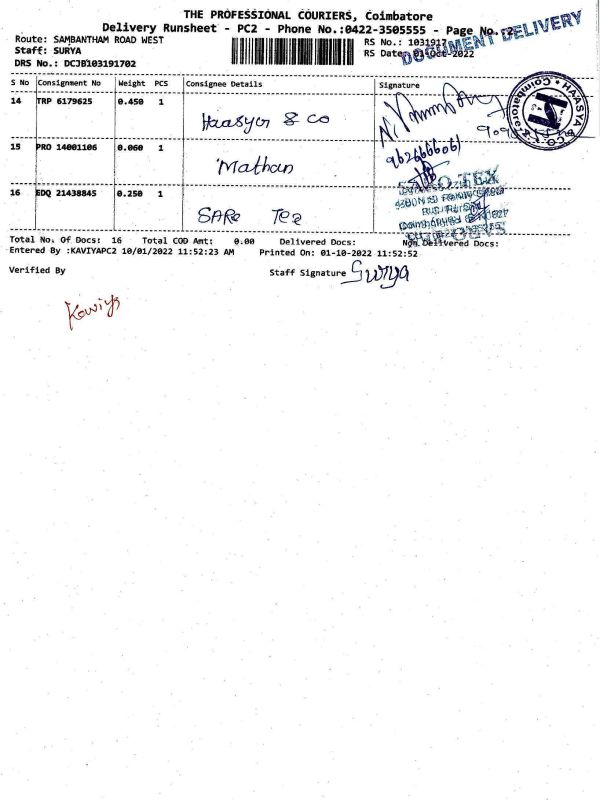 THE PROFESSIONAL COURIERS, Coimbatore
Delivery Runsheet - PC2 - Phone No.:0422-3505555 - Page No.:2
DOCUMENT DELIVERY
Route: SAMBANTHAM ROAD WEST
RS No.: 1031917
Staff: SURYA
RS Date: 01-Oct-2022
DRS No.: DCJB103191702
S No Consignment No Weight PCS Consignee Details Signature
14 TRP 6179625 0.450 1 Haasya & Co
HAASYA & CO Coimbatore
15 PRO 14001106 0.060 1 Mathan 9626666061
16 EDQ 21438845 0.250 1 SARO Tex
SARO TEX
Total No. Of Docs: 16 Total COD Amt: 0.00 Delivered Docs: Non Delivered Docs:
Entered By :KAVIYAPC2 10/01/2022 11:52:23 AM Printed On: 01-10-2022 11:52:52
Verified By Staff Signature Surya
Kaviya